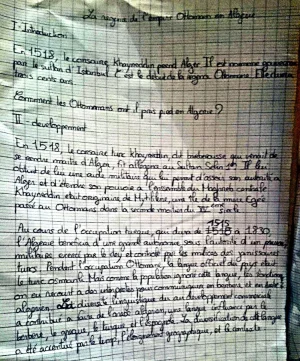 La régence de l'empire Ottoman en Algérie
I - Introduction
En 1518, le corsaire Khayreddin prend Alger Il est nommé gouverneur
par le sultan d'Istanbul C'est le début de la régence Ottomane Elle durera
trois cents ans
Comment les Ottomans ont il pris pied en Algérie?
II - developpement
En 1518, le corsaire turc Khayreddin, dit barberousse qui venait de
se rendre maitre d'Alger, fit allégeance au Sultan Selim 1er. Il
obtenu de lui une aide militaire qui lui permet d'asseoir son autorité à
Alger et d'étendre son pouvoir à l'ensemble du Maghreb central
Khayreddin était originaire de Mytilène, une île de la mer Egée
passé au Ottomans dans la seconde moitié du XV siècle
Au cours de l'occupation turque, qui dura de 1518 à 1830,
l'Algérie bénéficia d'une grande autonomie sous l'autorité d'un pouvoir
militaire exercé par le dey et controlé par les milices des janissaires
turcs. Pendant l'occupation Ottomane, la langue officielle du pays était
le turc osmanli. Mais comme la population ignorait cette langue, les
on eu recours à des interprètes pour communiquer en berbère et en arabe
algérien. La diversité linguistique du au développement communautaire
a continué à faire de l'arabe algérien, une langue influencé par le
berbère, le grecque, le turque, et l'espagnole. La diversification de cette langue
a été accentué par le temp, l'éloignement géographique, et le contacte